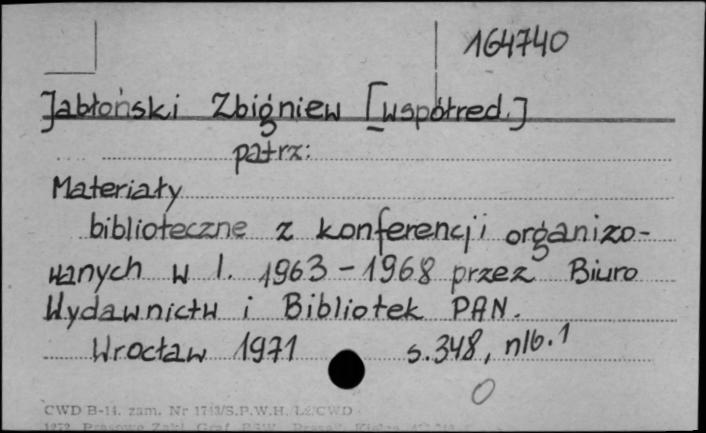 164740
Jabłoński Zbigniew [współred.]
patrz:
Materiały
biblioteczne z konferencji organizo-
wanych w l. 1963-1968 przez Biuro
Wydawnictw i Bibliotek PAN.
Wrocław 1971 s.348, nlb.1
0
CWD B-14. zam. Nr